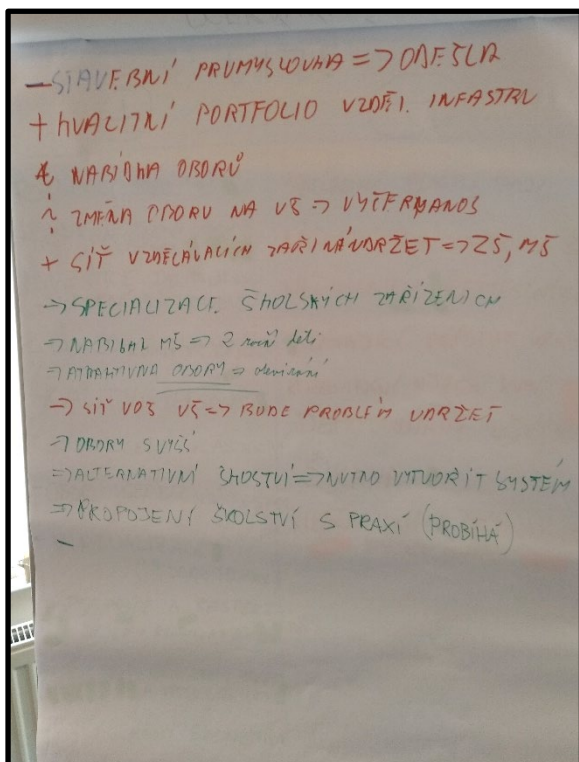 - STAVEBNÍ PRUMYSLOVKA => ODEŠLA
+ KVALITNÍ PORTFOLIO VZDĚL. INFASTRU
NABÍDKA OBORŮ
ZMĚNA OBORU NA VŠ =>
+ SÍŤ VZDĚLÁVACÍCH ZAŘ. UDRŽET => ZŠ, MŠ
-> SPECIALIZACE ŠKOLSKÝCH ZAŘÍZENÍCH
-> MŠ => 2 roční děti
-> ATRAKTIVNA OBORY => otevírání
-> SÍŤ VOŠ VŠ => BUDE PROBLÉM UDRŽET
-> OBORY S
=> ALTERNATIVNÍ => NUTNO VYTVOŘIT SYSTÉM
=> PROPOJENÍ ŠKOLSTVÍ S PRAXÍ (PROBÍHÁ)
-